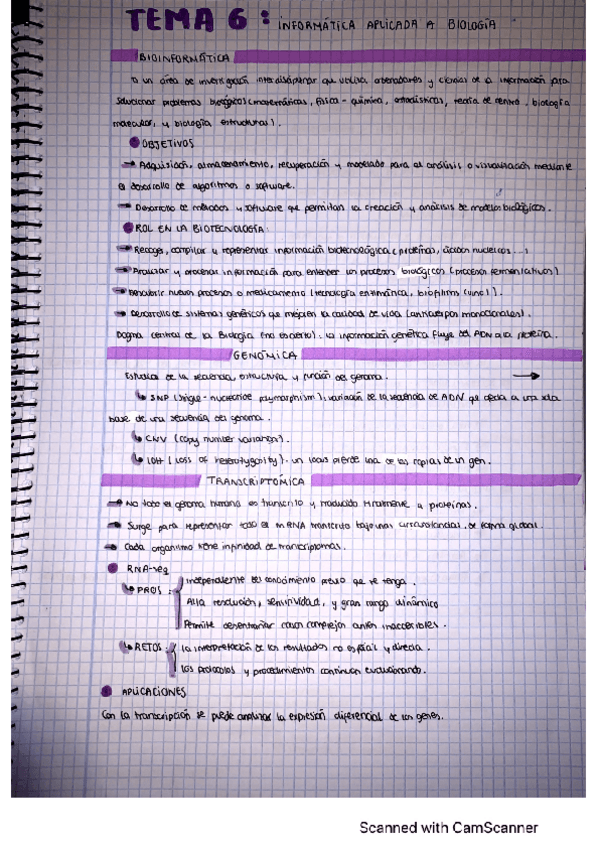 TEMA 6: INFORMÁTICA APLICADA A BIOLOGÍA
BIOINFORMÁTICA
un área de investigación interdisciplinar que utiliza ordenadores y ciencias de la información para
solucionar problemas biológicos (matemáticas, física-química, estadísticas, teoría de control, biología
molecular, y biología estructural).
OBJETIVOS
→ Adquisición, almacenamiento, recuperación y modelado para al análisis o visualización mediante
el desarrollo de algoritmos o software.
→ Desarrollo de métodos y software que permitan la creación y análisis de modelos biológicos.
ROL EN LA BIOTECNOLOGÍA:
→ Recoger, compilar y representar información biotecnológica (proteínas, ácidos nucleicos...)
→ Analizar y procesar información para entender los procesos biológicos (procesos fermentativos)
→ Descubrir nuevos procesos o medicamento (tecnología enzimática, biofilms).
→ Desarrollo de sistemas genéticos que mejoren la calidad de vida (anticuerpos monoclonales).
Dogma central de la Biología (no es cierto): la información genética fluye del ADN a la proteína.
GENÓMICA
Estudio de la secuencia, estructura y función del genoma. →
↳ SNP (single-nucleotide polymorphism), variación de la secuencia de ADN que afecta a una sola
base de una secuencia del genoma.
↳ CNV (copy number variation).
↳ LOH (Loss of heterozygosity). un locus pierde una de las copias de un gen.
TRANSCRIPTÓMICA
→ No todo el genoma humano es transcrito y traducido a proteínas.
→ Surge para representar todo el mRNA transcrito bajo unas circunstancias, de forma global.
→ Cada organismo tiene infinidad de transcriptomas.
RNA-seq
↳ PROS: Independiente del conocimiento previo que se tenga.
Alta resolución, sensitividad, y gran rango dinámico
Permite desentrañar casos complejos antes inaccesibles.
↳ RETOS: La interpretación de los resultados no es fácil y directa.
Los protocolos y procedimientos continuan evolucionando.
APLICACIONES
Con la transcripción se puede analizar la expresión diferencial de los genes.
Scanned with CamScanner